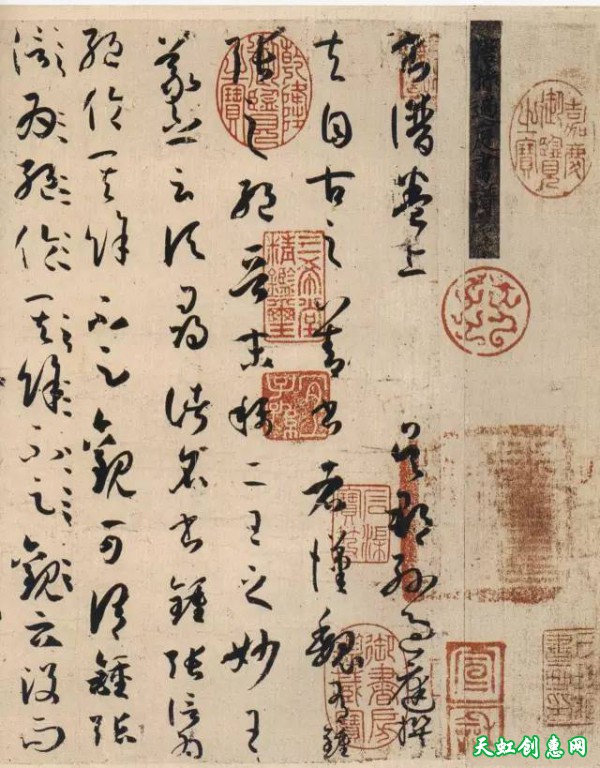 嘉慶御覽之寶
書譜卷上 吳郡孫過庭撰
夫自古之善書者漢魏有鍾
張之絕晉末稱二王之妙王
羲之云頃尋諸名書鍾張信為
絕倫其餘不足觀可謂鍾張
信為絕倫其餘不足觀云沒而
乾隆御覽之寶
三希堂精鑑璽
宜子孫
石渠寶笈
御書房鑑藏寶
宣和
天虹创惠网